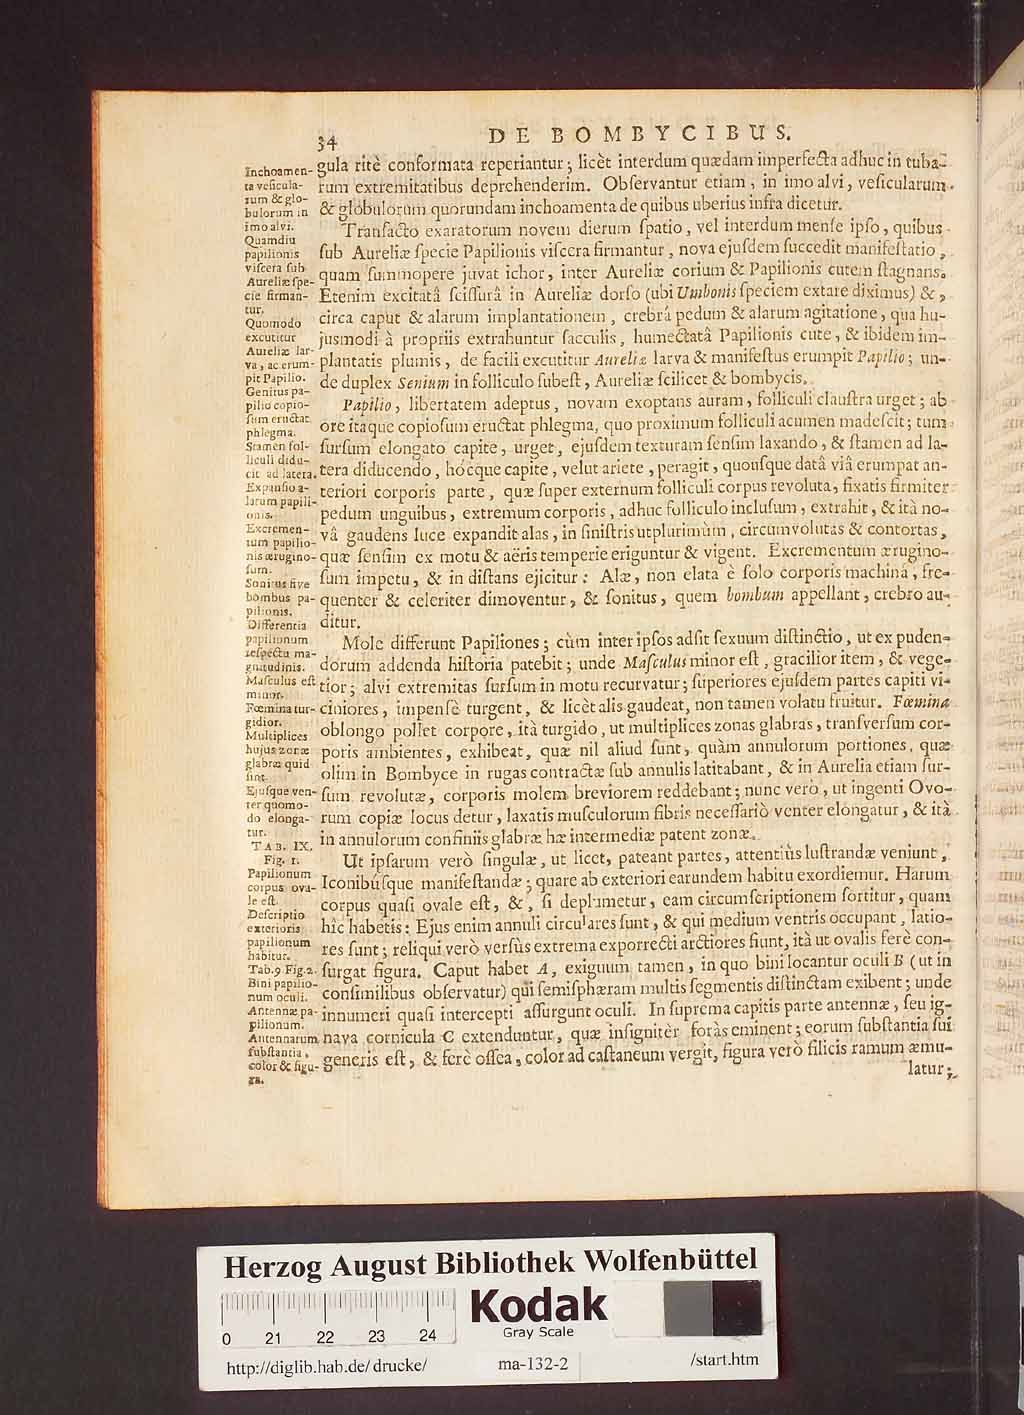 34
DE BOMBYCIBUS.
gula ritè conformata reperiantur; licèt interdum quædam imperfecta adhuc in tuba-
rum extremitatibus deprehenderim. Obſervantur etiam, in imo alvi, veſicularum
& globulorum quorundam inchoamenta de quibus uberius infra dicetur.
Tranſacto exaratorum novem dierum ſpatio, vel interdum menſe ipſo, quibus
ſub Aureliæ ſpecie Papilionis viſcera firmantur, nova ejuſdem ſuccedit manifeſtatio,
quam ſummopere juvat ichor, inter Aureliæ corium & Papilionis cutem ſtagnans.
Etenim excitatâ ſciſſurâ in Aureliæ dorſo (ubi Umbonis ſpeciem extare diximus) &,
circa caput & alarum implantationem, crebrâ pedum & alarum agitatione, qua hu-
juſmodi à propriis extrahuntur ſacculis, humectatâ Papilionis cute, & ibidem im-
plantatis plumis, de facili excutitur Aureliæ larva & manifeſtus erumpit Papilio; un-
de duplex Senium in folliculo ſubeſt, Aureliæ ſcilicet & bombycis.
Papilio, libertatem adeptus, novam exoptans auram, folliculi clauſtra urget; ab
ore itaque copioſum eructat phlegma, quo proximum folliculi acumen madeſcit; tum
ſurſum elongato capite, urget, ejuſdem texturam ſenſim laxando, & ſtamen ad la-
tera diducendo, hócque capite, velut ariete, peragit, quouſque datâ viâ erumpat an-
teriori corporis parte, quæ ſuper externum folliculi corpus revoluta, fixatis firmiter
pedum unguibus, extremum corporis, adhuc folliculo incluſum, extrahit, & ità no-
vâ gaudens luce expandit alas, in ſiniſtris utplurimùm, circumvolutas & contortas,
quæ ſenſim ex motu & aëris temperie eriguntur & vigent. Excrementum ærugino-
ſum impetu, & in diſtans ejicitur: Alæ, non elata è ſolo corporis machinâ, fre-
quenter & celeriter dimoventur, & ſonitus, quem bombum appellant, crebro au-
ditur.
Mole differunt Papiliones; cùm inter ipſos adſit ſexuum diſtinctio, ut ex puden-
dorum addenda hiſtoria patebit; unde Maſculus minor eſt, gracilior item, & vege-
tior; alvi extremitas ſurſum in motu recurvatur; ſuperiores ejuſdem partes capiti vi-
ciniores, impenſè turgent, & licèt alis gaudeat, non tamen volatu fruitur. Fœmina
oblongo pollet corpore, ità turgido, ut multiplices zonas glabras, tranſverſum cor-
poris ambientes, exhibeat, quæ nil aliud ſunt, quàm annulorum portiones, quæ
olim in Bombyce in rugas contractæ ſub annulis latitabant, & in Aurelia etiam ſur-
ſum revolutæ, corporis molem breviorem reddebant; nunc verò, ut ingenti Ovo-
rum copiæ locus detur, laxatis muſculorum fibris neceſſariò venter elongatur, & ità
in annulorum confiniis glabræ hæ intermediæ patent zonæ.
Ut ipſarum verò ſingulæ, ut licet, pateant partes, attentiùs luſtrandæ veniunt,
Iconibúſque manifeſtandæ; quare ab exteriori earundem habitu exordiemur. Harum
corpus quaſi ovale eſt, &, ſi deplumetur, eam circumſcriptionem ſortitur, quam
hîc habetis: Ejus enim annuli circulares ſunt, & qui medium ventris occupant, latio-
res ſunt; reliqui verò verſùs extrema exporrecti arctiores fiunt, ità ut ovalis ferè con-
ſurgat figura. Caput habet A, exiguum tamen, in quo bini locantur oculi B (ut in
conſimilibus obſervatur) qui ſemiſphæram multis ſegmentis diſtinctam exibent; unde
innumeri quaſi intercepti aſſurgunt oculi. In ſuprema capitis parte antennæ, ſeu ig-
nava cornicula C extenduntur, quæ inſignitèr foràs eminent; eorum ſubſtantia ſui
generis eſt, & ferè oſſea, color ad caſtaneum vergit, figura verò filicis ramum æmu-
latur;
Inchoamen-
ta veſicula-
rum & glo-
bulorum in
imo alvi.
Quamdiu
papilionis
viſcera ſub
Aureliæ ſpe-
cie firman-
tur.
Quomodo
excutitur
Aureliæ lar-
va, ac erum-
pit Papilio.
Genitus pa-
pilio copio-
ſum eructat
phlegma.
Stamen fol-
liculi didu-
cit ad latera.
Expanſio a-
larum papili-
onis.
Excremen-
tum papilio-
nis ærugino-
ſum.
Sonitus ſive
bombus pa-
pilionis.
Differentia
papilionum
reſpectu ma-
gnitudinis.
Maſculus eſt
minor.
Fœmina tur-
gidior.
Multiplices
hujus zonæ
glabræ quid
ſint.
Ejuſque ven-
ter quomo-
do elonga-
tur.
TAB. IX.
Fig. 1.
Papilionum
corpus ova-
le eſt.
Deſcriptio
exterioris
papilionum
habitur.
Tab.9 Fig.2.
Bini papilio-
num oculi.
Antennæ pa-
pilionum.
Antennarum
ſubſtantia,
color & figu-
ra.
Herzog August Bibliothek Wolfenbüttel
0 21 22 23 24
Kodak
Gray Scale
http://diglib.hab.de/drucke/ ma-132-2 /start.htm